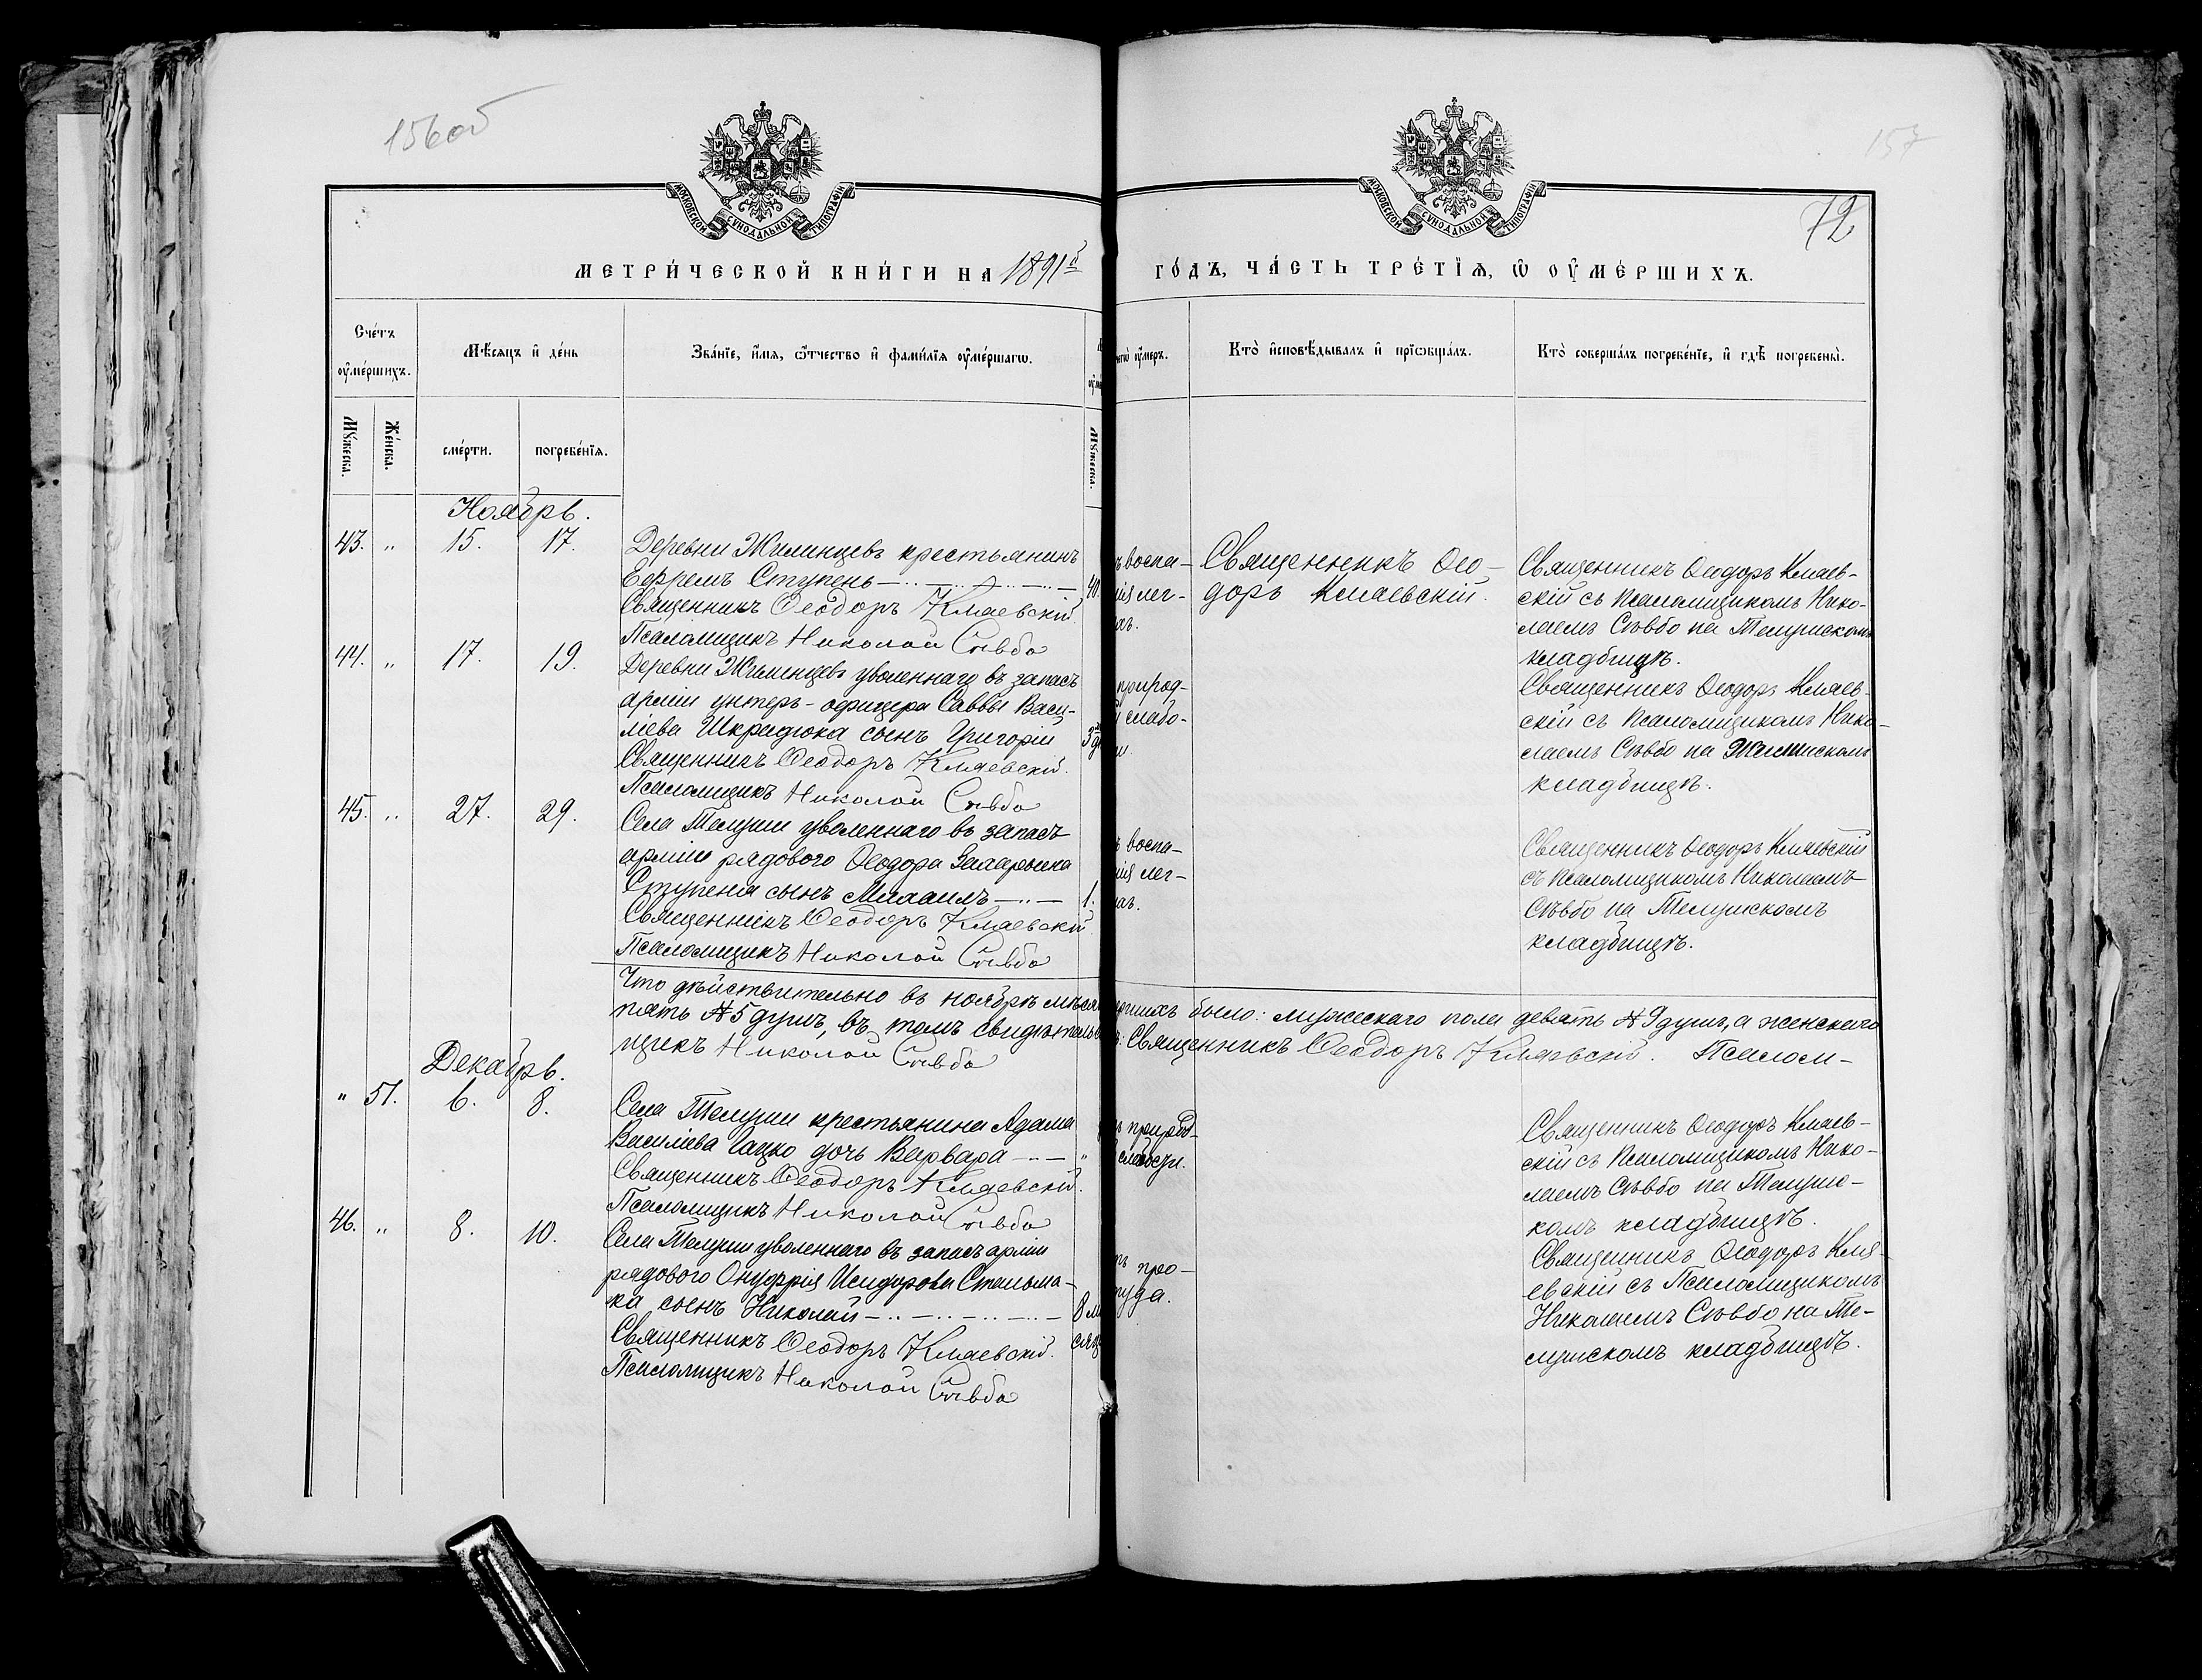 156об
157
72
МОСКОВСКОЙ СѴНОДАЛЬНОЙ ТИПОГРАФІИ
МОСКОВСКОЙ СѴНОДАЛЬНОЙ ТИПОГРАФІИ
МЕТРИ́ЧЕСКОЙ КНИ́ГИ НА 1891й ГО́ДЪ, ЧА́СТЬ ТРЕ́ТІѦ, Ѿ ОУ҆МЕ́РШИХЪ.
Сче́тъ оу҆ме́ршихъ.
Мѣ́сѧцъ и҆ де́нь
Зва́нїе, и҆́мѧ, ѻ҆́тчество и҆ фами́лїѧ оу҆ме́ршагѡ.
оу҆меръ.
Кто̀ и҆сповѣ́дывалъ и҆ прїѡбща́лъ.
Кто̀ соверша́лъ погребе́нїе, и҆ гдѣ̀ погребены̀.
Мꙋ́жеска.
Же́нска.
сме́рти.
погребе́нїѧ.
Мꙋ́жеска.
Ноябрь.
43. „ 15. 17.
Деревни Жилинцевъ крестьянинъ
Ефремъ Ступень 40.
Священникъ Ѳеодоръ Кляевскій.
Псаломщикъ Николай Сѣвбо
воспа-
нія лег-
Священникъ Ѳео-
доръ Кляевскій.
Священникъ Ѳеодоръ Кляев-
скій съ Псаломщикомъ Нико-
лаемъ Сѣвбо на Телушскомъ
кладбищѣ.
44. „ 17. 19.
Деревни Жилинцевъ уволеннаго въ запасъ
арміи унтеръ-офицера Саввы Васи-
ліева Шкрадюка сынъ Григорій
Священникъ Ѳеодоръ Кляевскій.
Псаломщикъ Николай Сѣвбо
природ-
слабо-
Священникъ Ѳеодоръ Кляев-
скій съ Псаломщикомъ Нико-
лаемъ Сѣвбо на Жилинскомъ
кладбищѣ.
45. „ 27. 29.
Села Телуши уволеннаго въ запасъ
арміи рядового Ѳеодора
Ступеня сынъ Михаилъ 1.
Священникъ Ѳеодоръ Кляевскій
Псаломщикъ Николай Сѣвбо
воспа-
нія лег-
Священникъ Ѳеодоръ Кляевскій
съ Псаломщикомъ Николаемъ
Сѣвбо на Телушскомъ
кладбищѣ.
Что дѣйствительно въ ноябрѣ мѣся
ершихъ было: мужескаго пола девять № 9 душъ, а женскаго
пять № 5 душъ, въ томъ свидѣтельс
Священникъ Ѳеодоръ Кляевскій. Псалом-
щикъ Николай Сѣвбо
Декабрь.
„ 51. 6. 8.
Села Телуши крестьянина Адама
Василіева Гацко дочь Варвара „
Священникъ Ѳеодоръ Кляевскій.
Псаломщикъ Николай Сѣвбо
природ-
слабости.
Священникъ Ѳеодоръ Кляев-
скій съ Псаломщикомъ Нико-
лаемъ Сѣвбо на Телушс-
комъ кладбищѣ.
46. „ 8. 10.
Села Телуши уволеннаго въ запасъ арміи
рядового Онуфрія Исидорова Стельма-
ка сынъ Николай 8 м
Священникъ Ѳеодоръ Кляевскій. сяц
Псаломщикъ Николай Сѣвбо
про-
туда.
Священникъ Ѳеодоръ Кля-
евскій съ Псаломщикомъ
Николаемъ Сѣвбо на Те-
лушскомъ кладбищѣ.